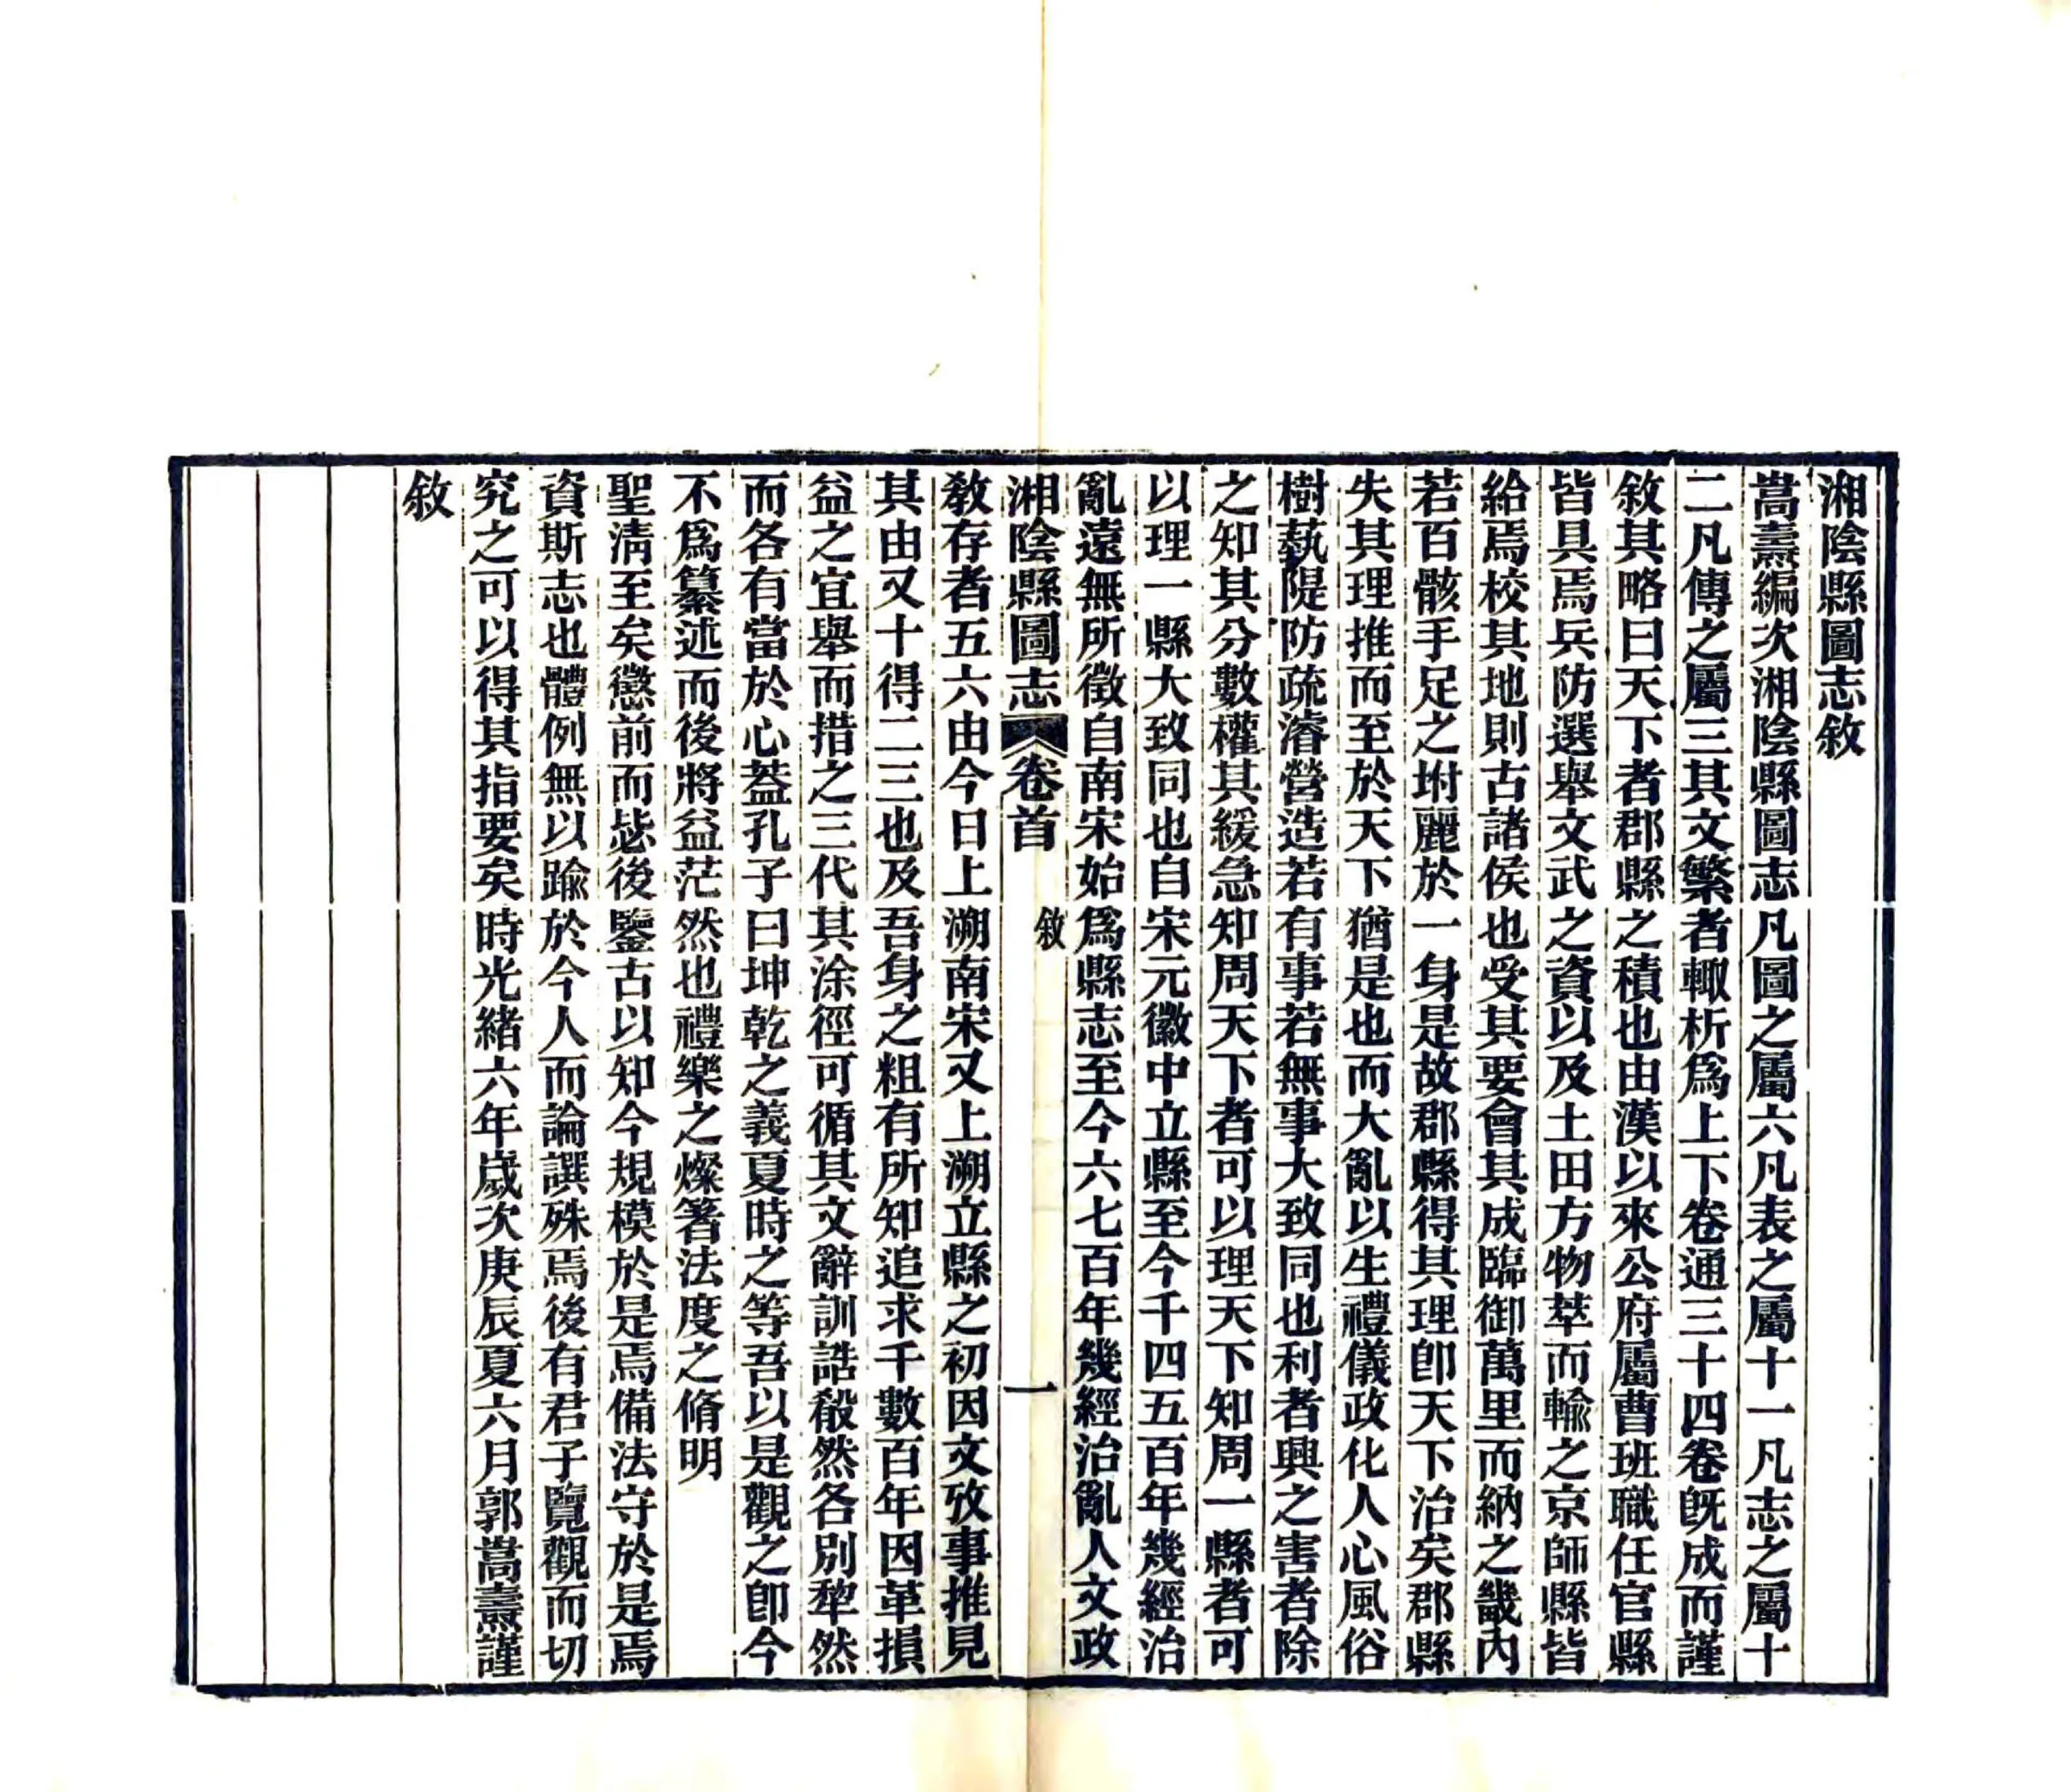 湘陰縣圖志敘
嵩燾編次湘陰縣圖志凡圖之屬六凡表之屬十一凡志之屬十
二凡傳之屬三其文繁者輙析爲上下卷通三十四卷旣成而謹
敘其略曰天下者郡縣之積也由漢以來公府屬曹班職任官縣
皆具焉兵防選舉文武之資以及土田方物萃而輸之京師縣皆
給焉校其地則古諸侯也受其要會其成臨御萬里而納之畿內
若百骸手足之坿麗於一身是故郡縣得其理卽天下治矣郡縣
失其理推而至於天下猶是也而大亂以生禮儀政化人心風俗
樹蓺隄防疏濬營造若有事若無事大致同也利者興之害者除
之知其分數權其緩急知周天下者可以理天下知周一縣者可
以理一縣大致同也自宋元徽中立縣至今千四五百年幾經治
亂遠無所徵自南宋始爲縣志至今六七百年幾經治亂人文政
湘陰縣圖志 卷首 敘 一
敎存者五六由今日上溯南宋又上溯立縣之初因文攷事推見
其由又十得二三也及吾身之粗有所知追求千數百年因革損
益之宜舉而措之三代其涂徑可循其文辭訓誥殽然各別犂然
而各有當於心葢孔子曰坤乾之義夏時之等吾以是觀之卽今
不爲纂述而後將益茫然也禮樂之燦箸法度之脩明
聖淸至矣懲前而毖後鑒古以知今規模於是焉備法守於是焉
資斯志也體例無以踰於今人而論譔殊焉後有君子覽觀而切
究之可以得其指要矣時光緒六年歲次庚辰夏六月郭嵩燾謹
敘